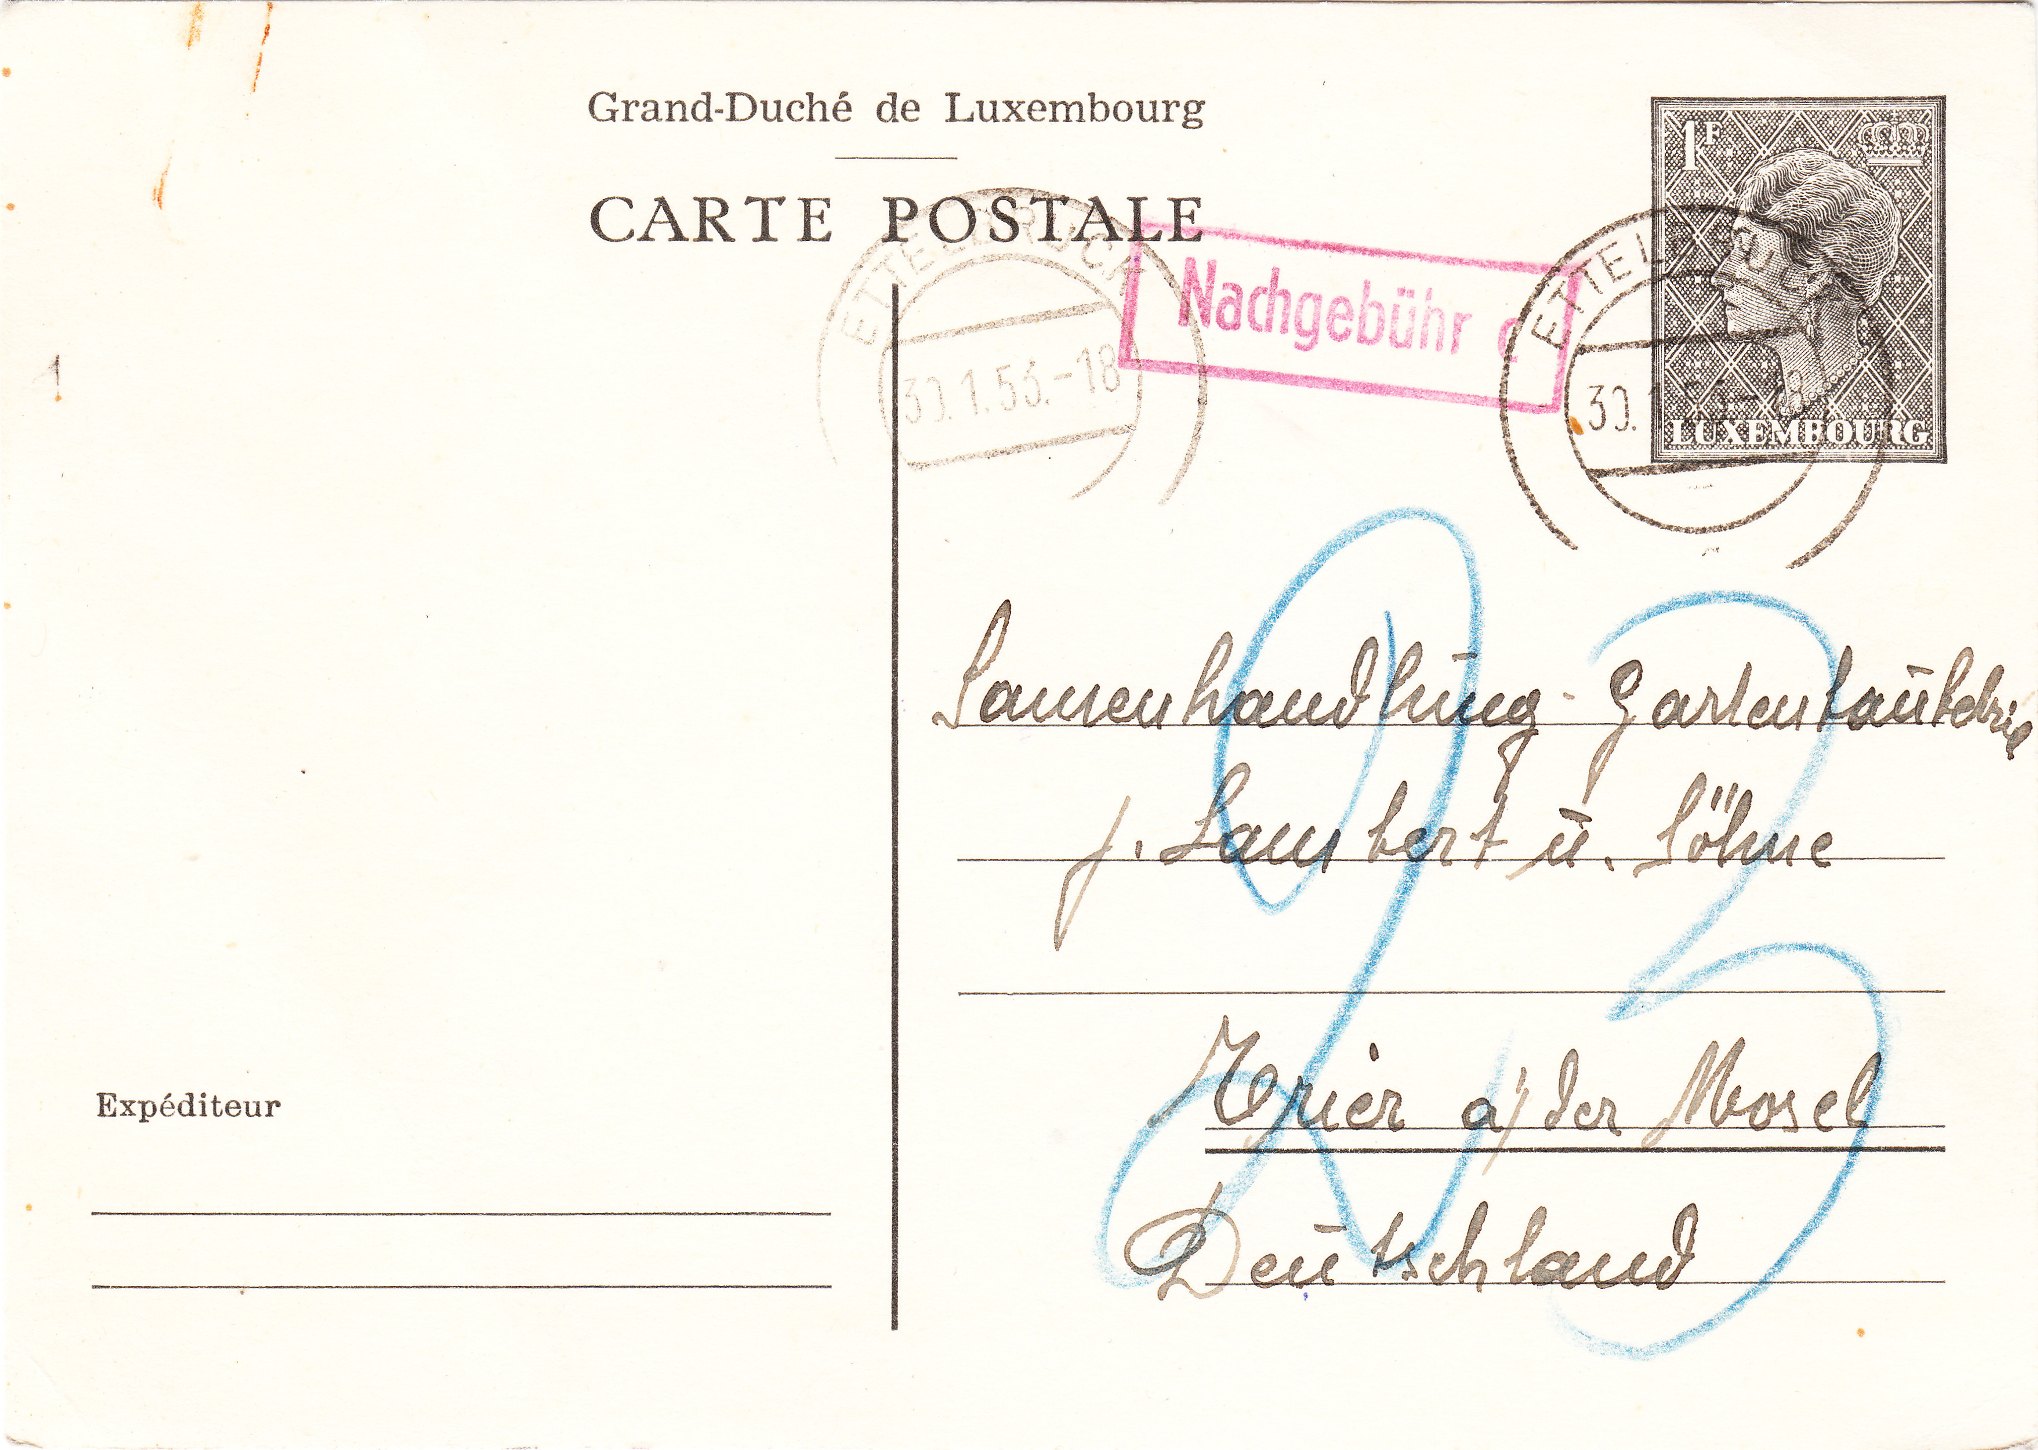 Grand-Duché de Luxembourg
CARTE POSTALE
1F
LUXEMBOURG
ETTELBRUCK
30.1.53.-18
Nachgebühr
ETTELBRUCK
30.1.53.-18
1
Samenhandlung - Gartenbaubetrie
J. Lambert u. Söhne
Trier a/der Mosel
Deutschland
23
Expéditeur